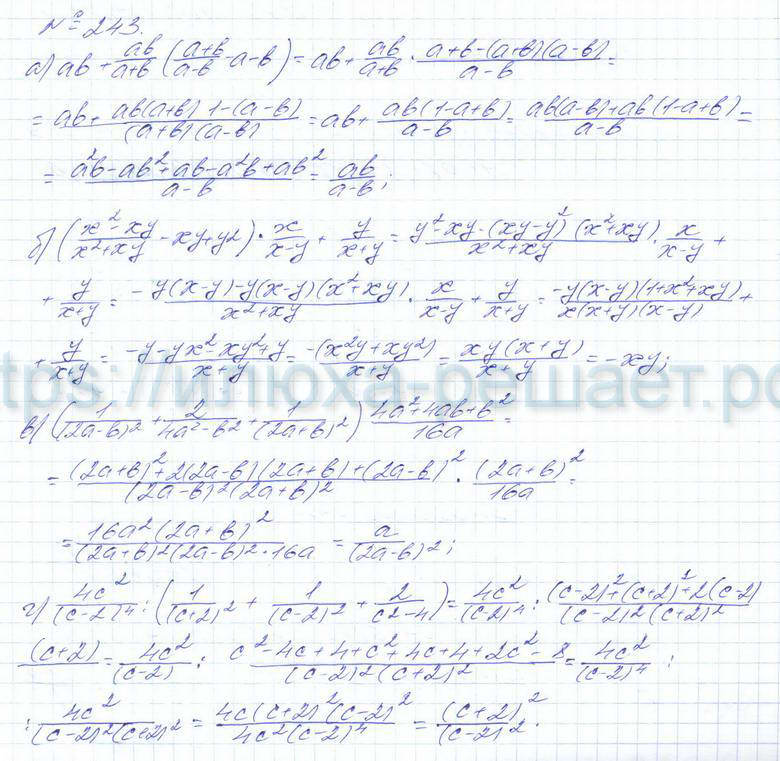 № 243.
а) ab + ab/(a+b) ((a+b)/(a-b) - a - b) = ab + ab/(a+b) · (a+b-(a+b)(a-b))/(a-b) =
= ab + (ab(a+b) 1-(a-b))/((a+b)(a-b)) = ab + (ab(1-a+b))/(a-b) = (ab(a-b)+ab(1-a+b))/(a-b) =
= (a²b-ab²+ab-a²b+ab²)/(a-b) = ab/(a-b);
б) ((x²-xy)/(x²+xy) - xy+y²) · x/(x-y) + y/(x+y) = (y²-xy-(xy-y²)(x²+xy))/(x²+xy) · x/(x-y) +
+ y/(x+y) = (-y(x-y)-y(x-y)(x²+xy))/(x²+xy) · x/(x-y) + y/(x+y) = (-y(x-y)(1+x²+xy))/(x(x+y)(x-y)) +
+ y/(x+y) = (-y-yx²-xy²+y)/(x+y) = (-(x²y+xy²))/(x+y) = (xy(x+y))/(x+y) = -xy;
https://илюха-решает.рф
в) (1/(2a-b)² + 2/(4a²-b²) + 1/(2a+b)²) (4a²+4ab+b²)/16a =
= ((2a+b)²+2(2a-b)(2a+b)+(2a-b)²)/((2a-b)²(2a+b)²) · (2a+b)²/16a =
= (16a²(2a+b)²)/((2a+b)²(2a-b)²·16a) = a/(2a-b)²;
г) 4c²/(c-2)⁴ : (1/(c+2)² + 1/(c-2)² + 2/(c²-4)) = 4c²/(c-2)⁴ : ((c-2)²+(c+2)²+2(c-2)/((c-2)²(c+2)²)
(c+2) = 4c²/(c-2) : (c²-4c+4+c²+4c+4+2c²-8)/((c-2)²(c+2)²) = 4c²/(c-2)⁴ :
: 4c²/((c-2)²(c+2)²) = (4c(c+2)²(c-2)²)/(4c²(c-2)⁴) = (c+2)²/(c-2)².